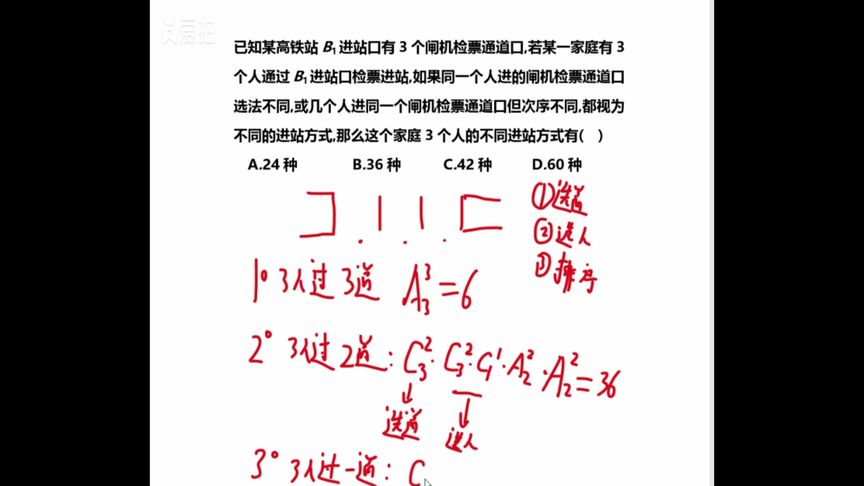 爱拍
已知某高铁站 B₁ 进站口有 3 个闸机检票通道口,若某一家庭有 3
个人通过 B₁ 进站口检票进站,如果同一个人进的闸机检票通道口
选法不同,或几个人进同一个闸机检票通道口但次序不同,都视为
不同的进站方式,那么这个家庭 3 个人的不同进站方式有( )
A.24 种 B.36 种 C.42 种 D.60 种
①选道
②选人
③排序
1° 3人过3道 A₃³=6
2° 3人过2道: C₃²·C₃²·C₁¹·A₂²·A₂²=36
选道 选人
3° 3人过一道: C